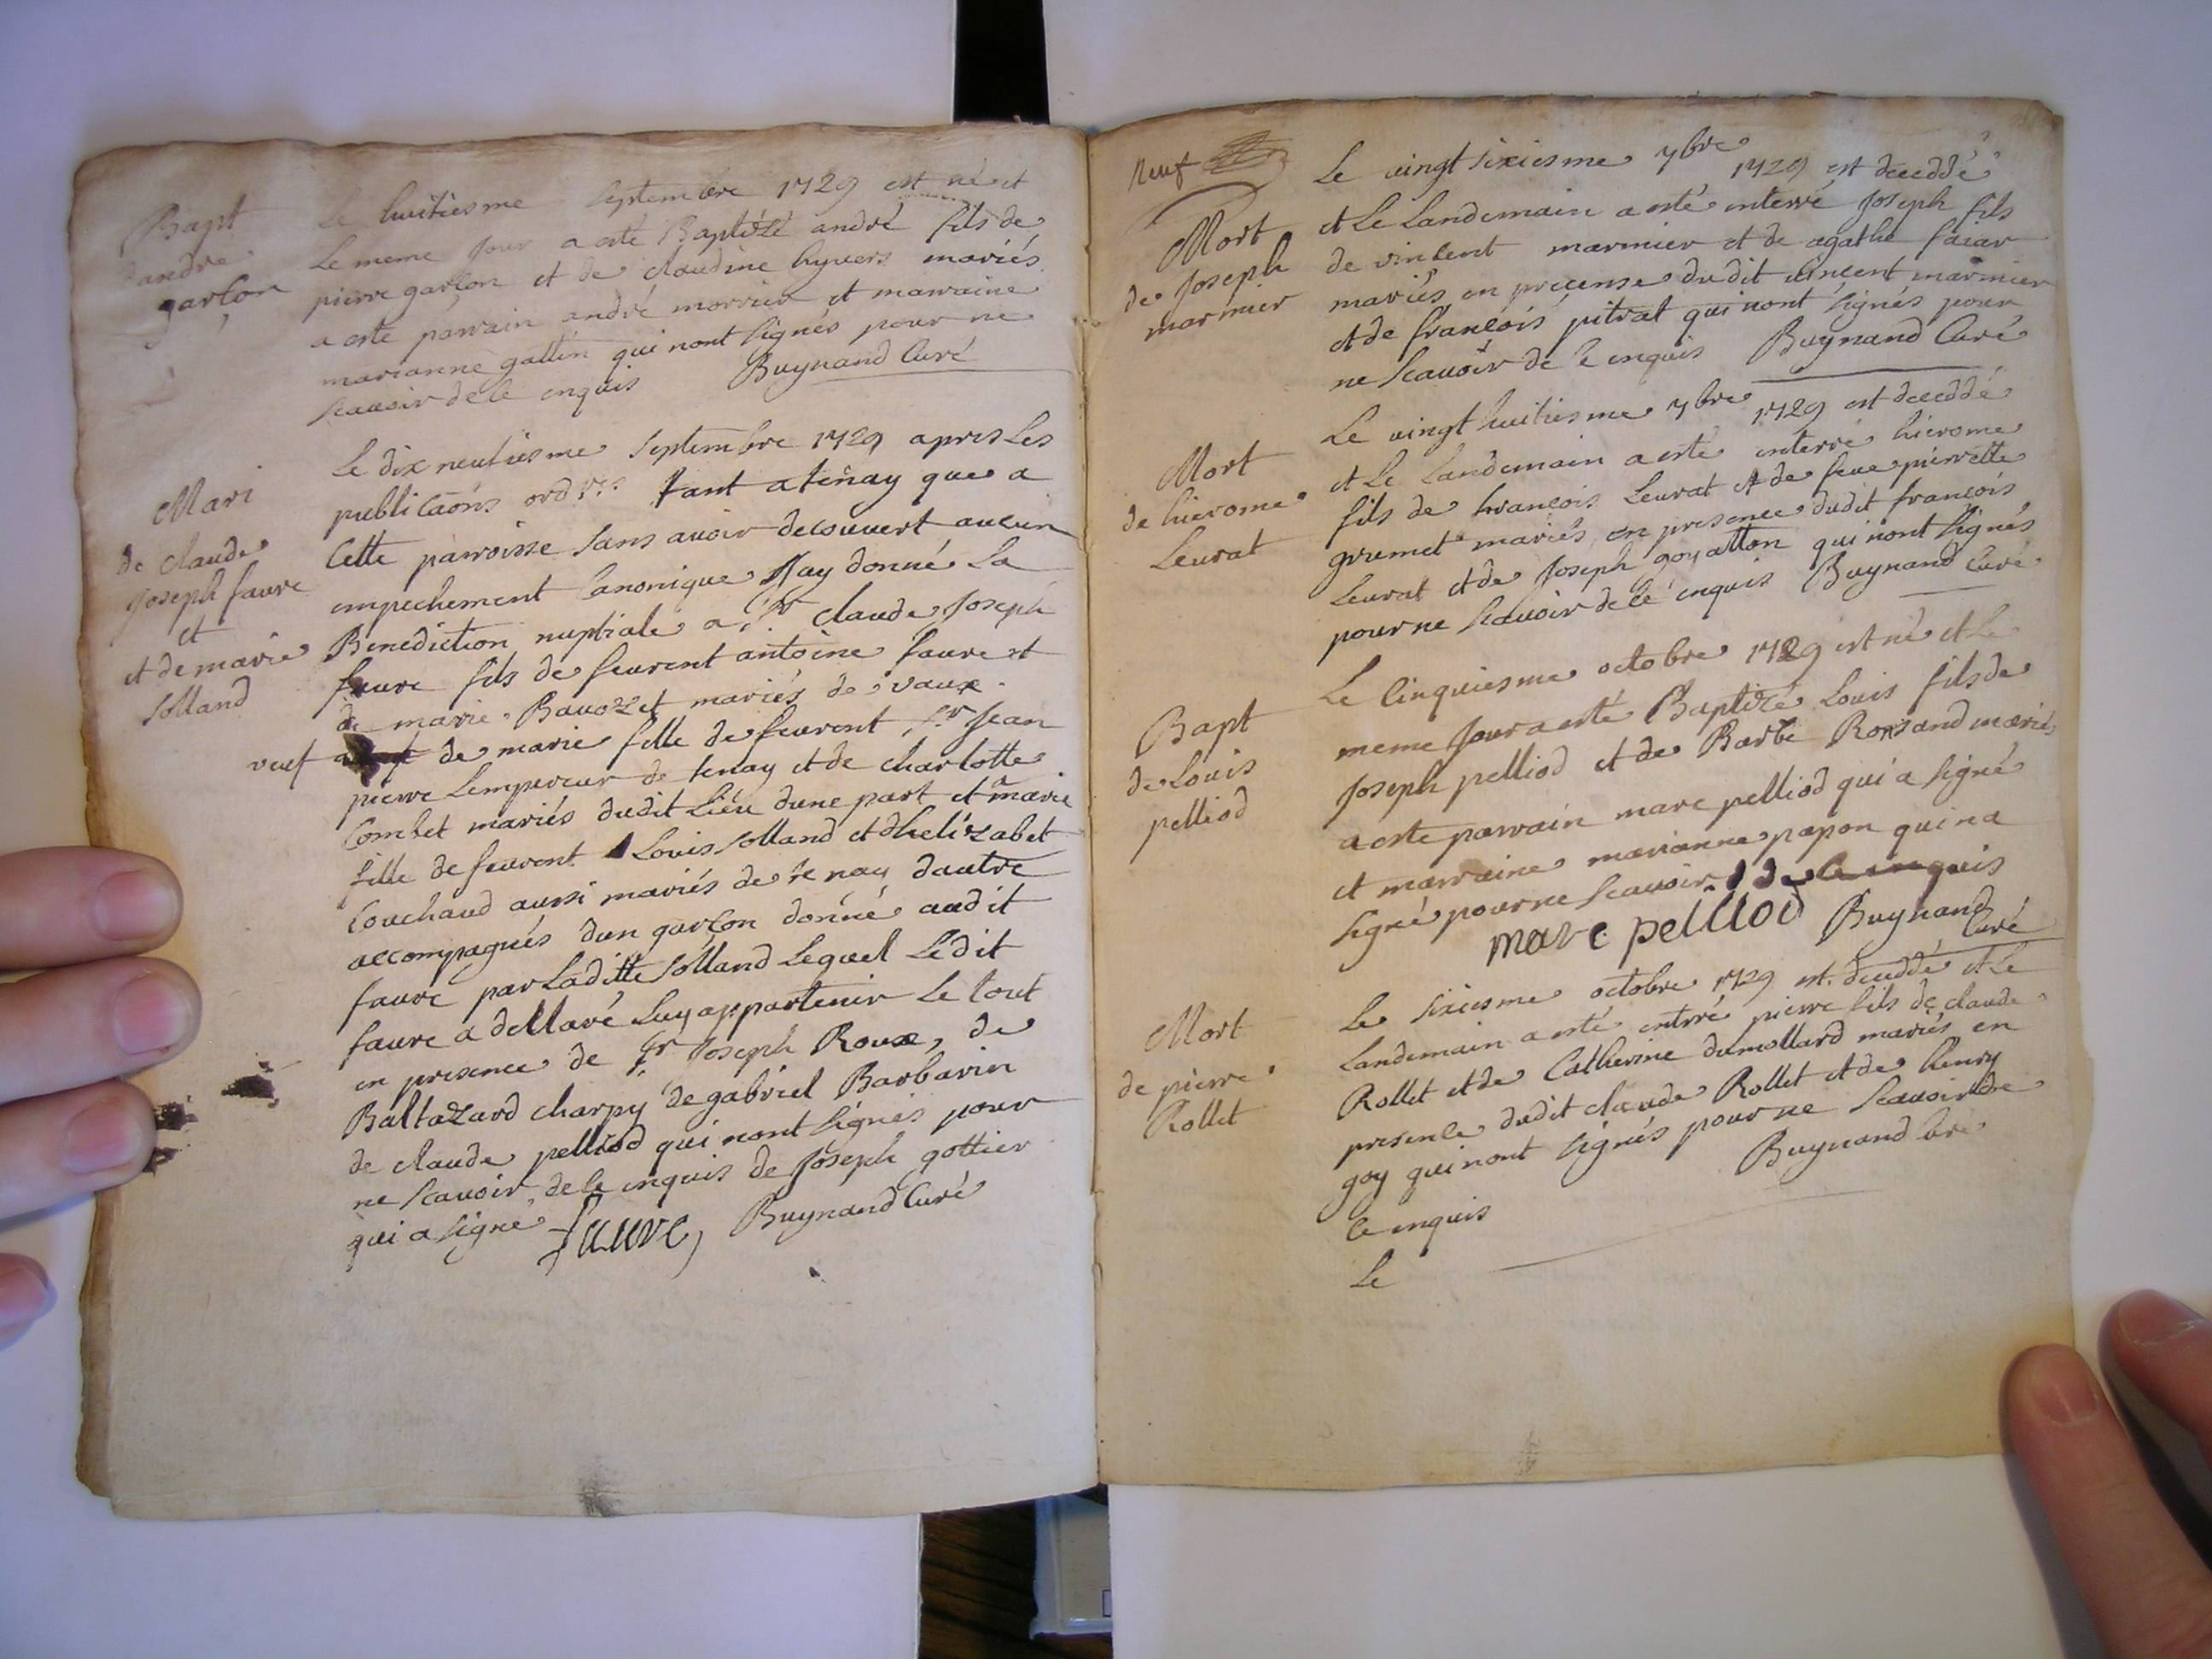 Bapt
dandre
garcon
Le huitiesme Septembre 1729 est né et
Le meme Jour a este Baptizé andré fils de
pierre garcon et de claudine hyvers mariés
a este parrain andré morrier et marraine
marianne gallin qui nont signés pour ne
scauoir de le enquis Buynand Curé
Mari
de claude
Joseph faure
et
et de marie
Solland
Le dix neufiesme Septembre 1729 apres Les
publicaons ordres tant a tenay que a
Cette parroisse sans auoir decouvert aucun
empechement Canonique Jay donné La
Benediction nuptiale a Sr claude Joseph
faure fils de feurent antoine faure et
de marie Bavozet mariés de vaux
veuf de marie fille de feurent Sr Jean
pierre Lempereur de tenay et de charlotte
Combet mariés dudit Lieu dune part et marie
fille de feurent Louis Solland et dhelizabet
Couchaud aussi mariés de tenay dautre
accompagnés dun garcon donné audit
faure par Laditte Solland Lequel Ledit
faure a declaré Luy appartenir Le tout
en presence de Sr Joseph Roux, de
Baltazard charpy de gabriel Barbarin
de claude pelliod qui nont signés pour
ne scauoir de le enquis de Joseph gottier
qui a signé faure Buynand Curé
neuf
Mort
de Joseph
marmier
Le vingt sixiesme 7bre 1729 est deceddé
et Le Landemain a esté enterré Joseph fils
de vincent marmier et de agathe faiar
mariés en precense dudit vincent marmier
et de francois pitrat qui nont signés pour
ne scauoir de le enquis Buynand Curé
Mort
de hierome
Leurat
Le vingt huitiesme 7bre 1729 est deceddé
et Le Landemain a esté enterré hierome
fils de francois Leurat et de feue pierrette
grumet mariés en presence dudit francois
Leurat et de Joseph goyatton qui nont signés
pour ne scauoir de le enquis Buynand Curé
Bapt
de Louis
pelliod
Le cinquiesme octobre 1729 est né et Le
meme Jour a esté Baptizé Louis fils de
Joseph pelliod et de Barbe Ronsand mariés
a este parrain marc pelliod qui a signé
et marraine marianne papon qui na
signé pour ne scauoir de le enquis
marc pellliod Buynand Curé
Mort
de pierre
Rollet
Le sixiesme octobre 1729 est deceddé et Le
Landemain a esté enterré pierre fils de claude
Rollet et de Catherine dumollard mariés en
presence dudit claude Rollet et de henry
goy qui nont signés pour ne scauoir de
le enquis Buynand Curé
Le